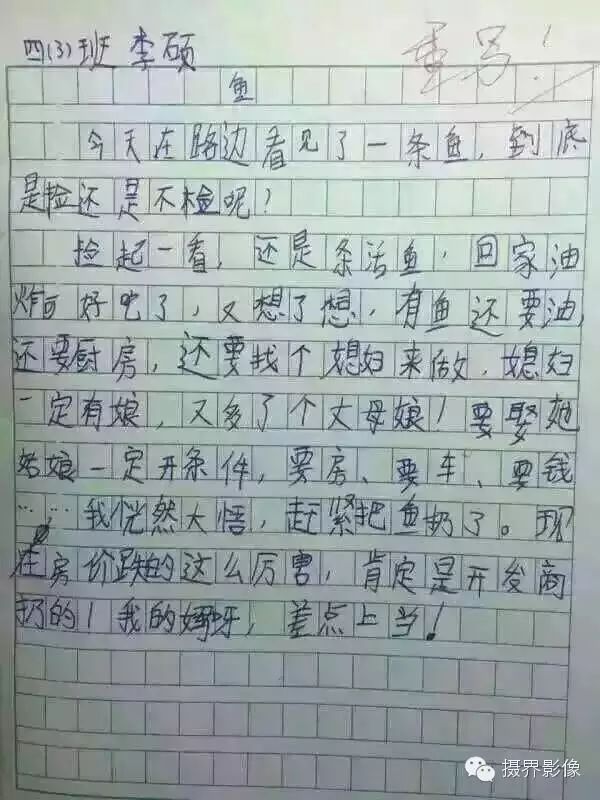 四(3)班 李硕
重写!
鱼
今天在路边看见了一条鱼,到底
是捡还是不检呢?
捡起一看,还是条活鱼,回家油
炸可好吃了,又想了想,有鱼还要油,
还要厨房,还要找个媳妇来做,媳妇
一定有娘,又多了个丈母娘!要娶她
姑娘一定开条件,要房、要车、要钱
……我恍然大悟,赶紧把鱼扔了。现
在房价跌的这么厉害,肯定是开发商
扔的!我的妈呀,差点上当!
摄界影像